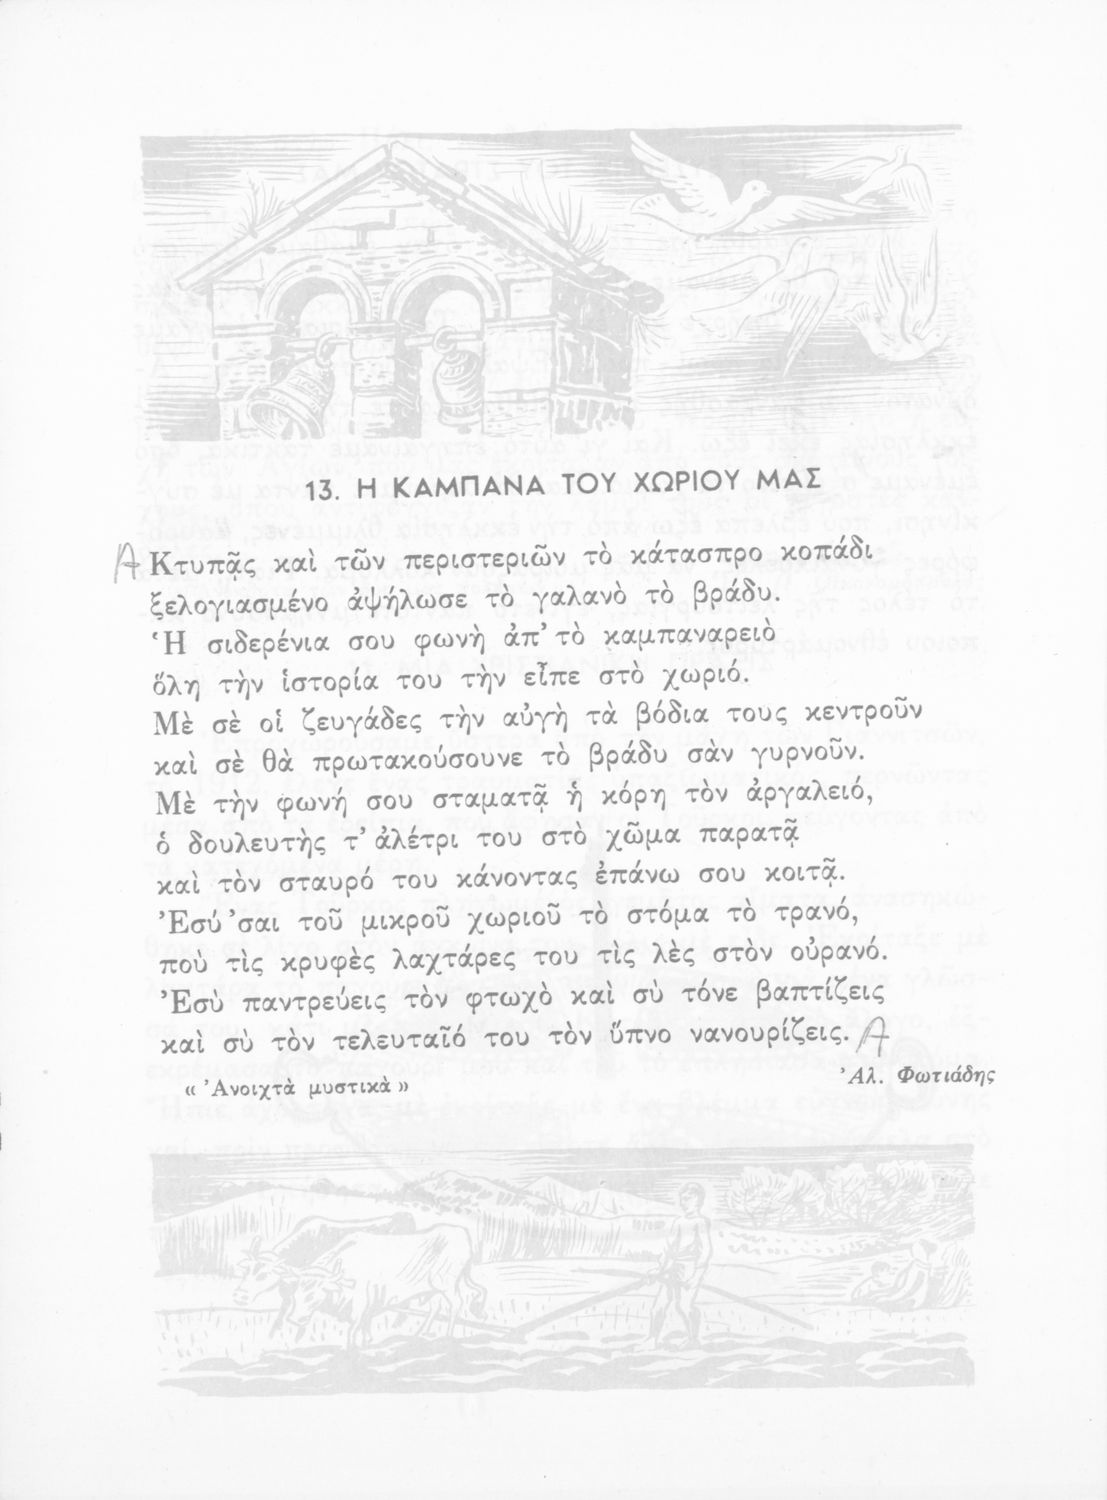 13. Η ΚΑΜΠΑΝΑ ΤΟΥ ΧΩΡΙΟΥ ΜΑΣ
Κτυπᾷς καὶ τῶν περιστεριῶν τὸ κάτασπρο κοπάδι
ξελογιασμένο ἀψήλωσε τὸ γαλανὸ τὸ βράδυ.
Ἡ σιδερένια σου φωνὴ ἀπ' τὸ καμπαναρειὸ
ὅλη τὴν ἱστορία του τὴν εἶπε στὸ χωριό.
Μὲ σὲ οἱ ζευγάδες τὴν αὐγὴ τὰ βόδια τους κεντροῦν
καὶ σὲ θὰ πρωτακούσουνε τὸ βράδυ σὰν γυρνοῦν.
Μὲ τὴν φωνή σου σταματᾷ ἡ κόρη τὸν ἀργαλειό,
ὁ δουλευτὴς τ' ἀλέτρι του στὸ χῶμα παρατᾷ
καὶ τὸν σταυρό του κάνοντας ἐπάνω σου κοιτᾷ.
Ἐσύ 'σαι τοῦ μικροῦ χωριοῦ τὸ στόμα τὸ τρανό,
ποὺ τὶς κρυφὲς λαχτάρες του τὶς λὲς στὸν οὐρανό.
Ἐσὺ παντρεύεις τὸν φτωχὸ καὶ σὺ τόνε βαπτίζεις
καὶ σὺ τὸν τελευταῖό του τὸν ὕπνο νανουρίζεις.
« Ἀνοιχτὰ μυστικὰ »
Ἀλ. Φωτιάδης